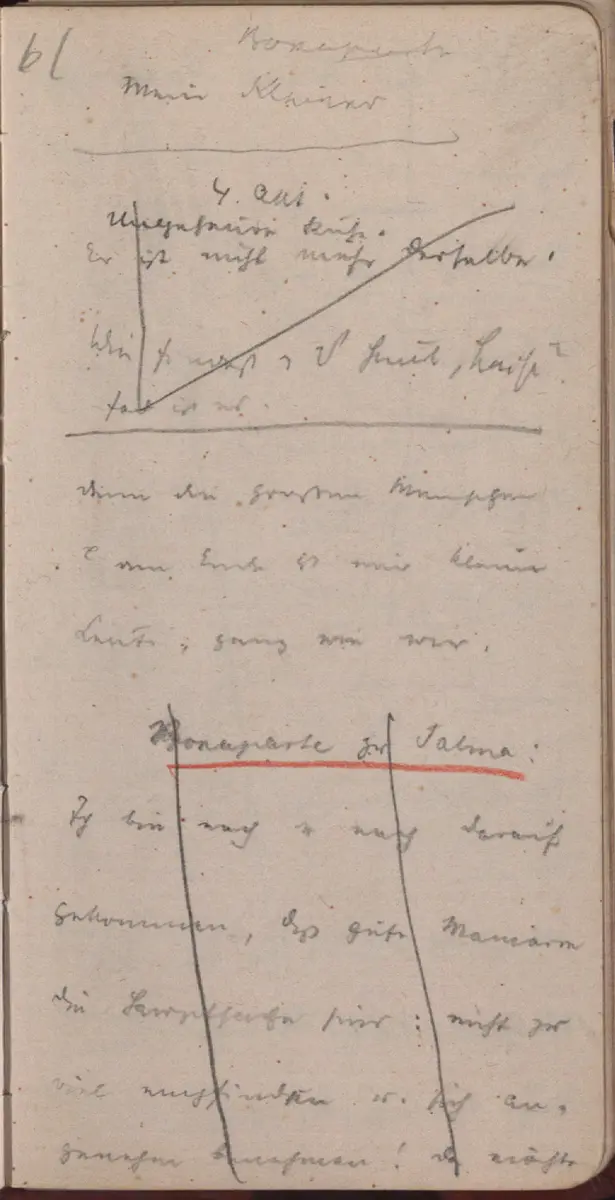 61
Bonaparte
Mein Kleiner
4. Akt.
Ungeheure Ruhe.
Er ist nicht mehr derselbe.
Wie
tot ist er.
denn die grossen Menschen
am Ende ist nur kleine
Leute, ganz wie wir.
Bonaparte zu Talma:
Ich bin nach u nach darauf
gekommen, dass gute Manieren
die Hauptsache sind: nicht zu
viel empfinden u. sich an-
genehm benehmen! Da möchte